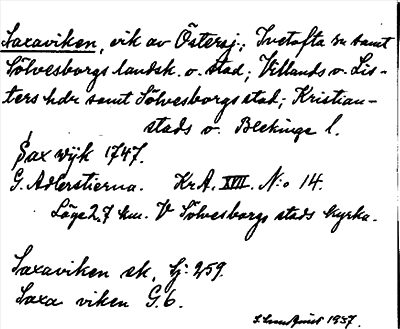 Saxaviken, vik av Östersj.; Ivetofta sn samt
Sölvesborgs landsk. o. stad; Villands o. Lis-
ters hdr samt Sölvesborgs stad; Kristian-
stads o. Blekinge l.
Sax wijk 1747.
G. Adlerstierna. Kr A. XVII. N:o 14.
Läge 2,7 km. V Sölvesborgs stads kyrka.
Saxaviken sk. bj: 259.
Saxa viken G. 6.
1937.